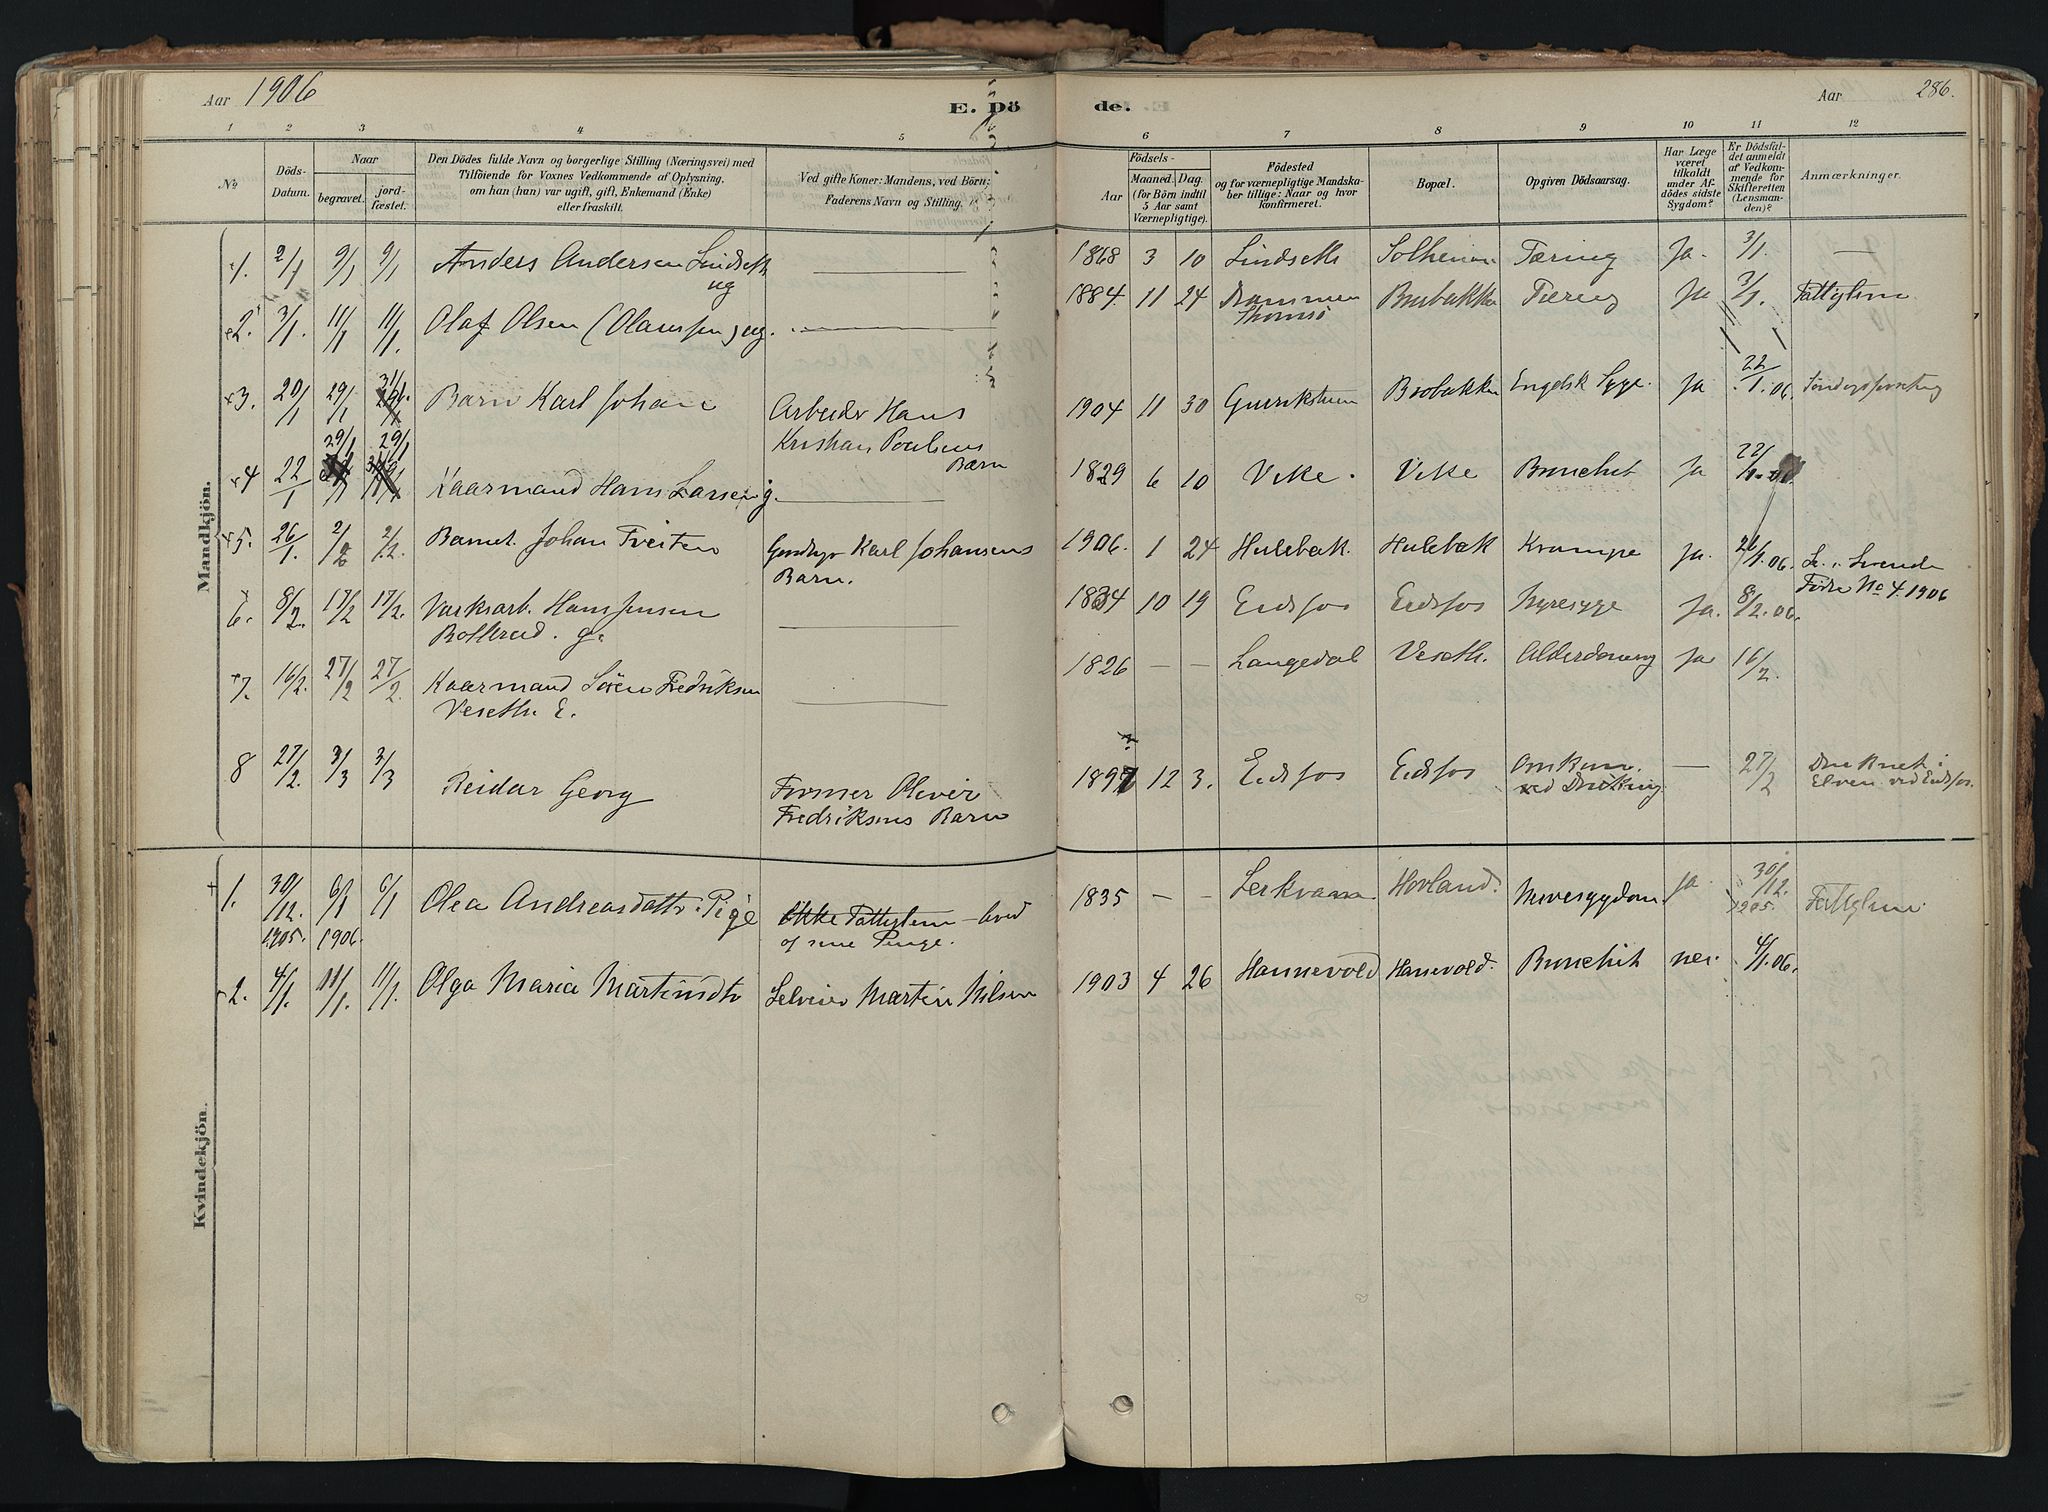 Aar 1906
E. Dö
de.
Aar
286.
1 2 3 4 5
6 7 8 9 10 11 12
No
Döds-
Datum.
Naar
begravet.
jord-
fæstet.
Den Dödes fulde Navn og borgerlige Stilling (Næringsvei) med
Tilföiende for Voxnes Vedkommende af Oplysning,
om han (hun) var ugift, gift, Enkemand (Enke)
eller fraskilt.
Ved gifte Koner: Mandens, ved Börn:
Faderens Navn og Stilling.
Födsels-
Aar
Maaned. Dag.
(for Börn indtil
5 Aar samt
Værnepligtige).
Födested
og for værnepligtige Mandska-
ber tillige: Naar og hvor
konfirmeret.
Bopæl.
Opgiven Dödsaarsag.
Har Læge
været
tilkaldt
under Af-
dödes sidste
Sygdom?
Er Dödsfal-
det anmeldt
af Vedkom-
mende for
Skifteretten
(Lensman-
den)?
Anmærkninger.
Mandkjön.
1. 2/1 9/1 9/1 Anders Andersen Lindseth
ug
1868 3 10 Lindseth Tæring Ja. 3/1. —
2. 3/1. 11/1 11/1. Olaf Olsen (Olaussen) ug.
1884. 11 24 Drammen Brubakken Tæring Ja 3/1. Fattiglem
Thomsö
3. 20/1 29/1 31/1 Barn Karl Johan
Arbeider Hans
Kristian Poulsens
Barn
1904 11 30 Brobakken Engelsk Syge. Ja 22/1.06.
4 22/1 29/1 29/1 Kaarmand Hans Larsen g.
1829 6 10 Vike. Vike Bronchit Ja 22/1.06
5. 26/1. 2/2 2/2. Barnet Johan Tveiten
Karl Johansens
Barn.
1906. 1 24 Hulebak. Hulebak Krampe Ja. 26/1.06.
Före No 4. 1906
6. 8/2. 17/2 17/2. Værksarb. Hans Jensen
Bollerud. g.
1834 10 19 Eidsfos Eidsfos Nyresyge Ja. 8/2.06.
7. 16/2. 27/2 27/2. Kaarmand Sören Fredriksen
Veseth. E.
1826 — — Langedal Veseth. Alderdomsvag Ja 16/2.
8 27/2. 3/3 3/3 Reidar Georg
Former Olevir
Fredriksens Barn
1897 12 3. Eidsfos Eidsfos Omkom.
ved Drukning
— 27/2 Druknet i
Elven ved Eidsfos.
Kvindekjön.
1. 30/12. 6/1 6/1 Olea Andreasdattr. Pige
1905. 1906.
Ikke Fattiglem – leved
af sine Penge.
1835 — — Lerkvam Hovland. Nervesygdom Ja. 30/12.
1905.
Fattiglem.
2. 4/1. 11/1. 11/1. Olga Maria Martinsdtr
Selveier Martin Nilsen
1903 4 26 Hannevold Hanevold. Bronchit nei. 4/1.06.